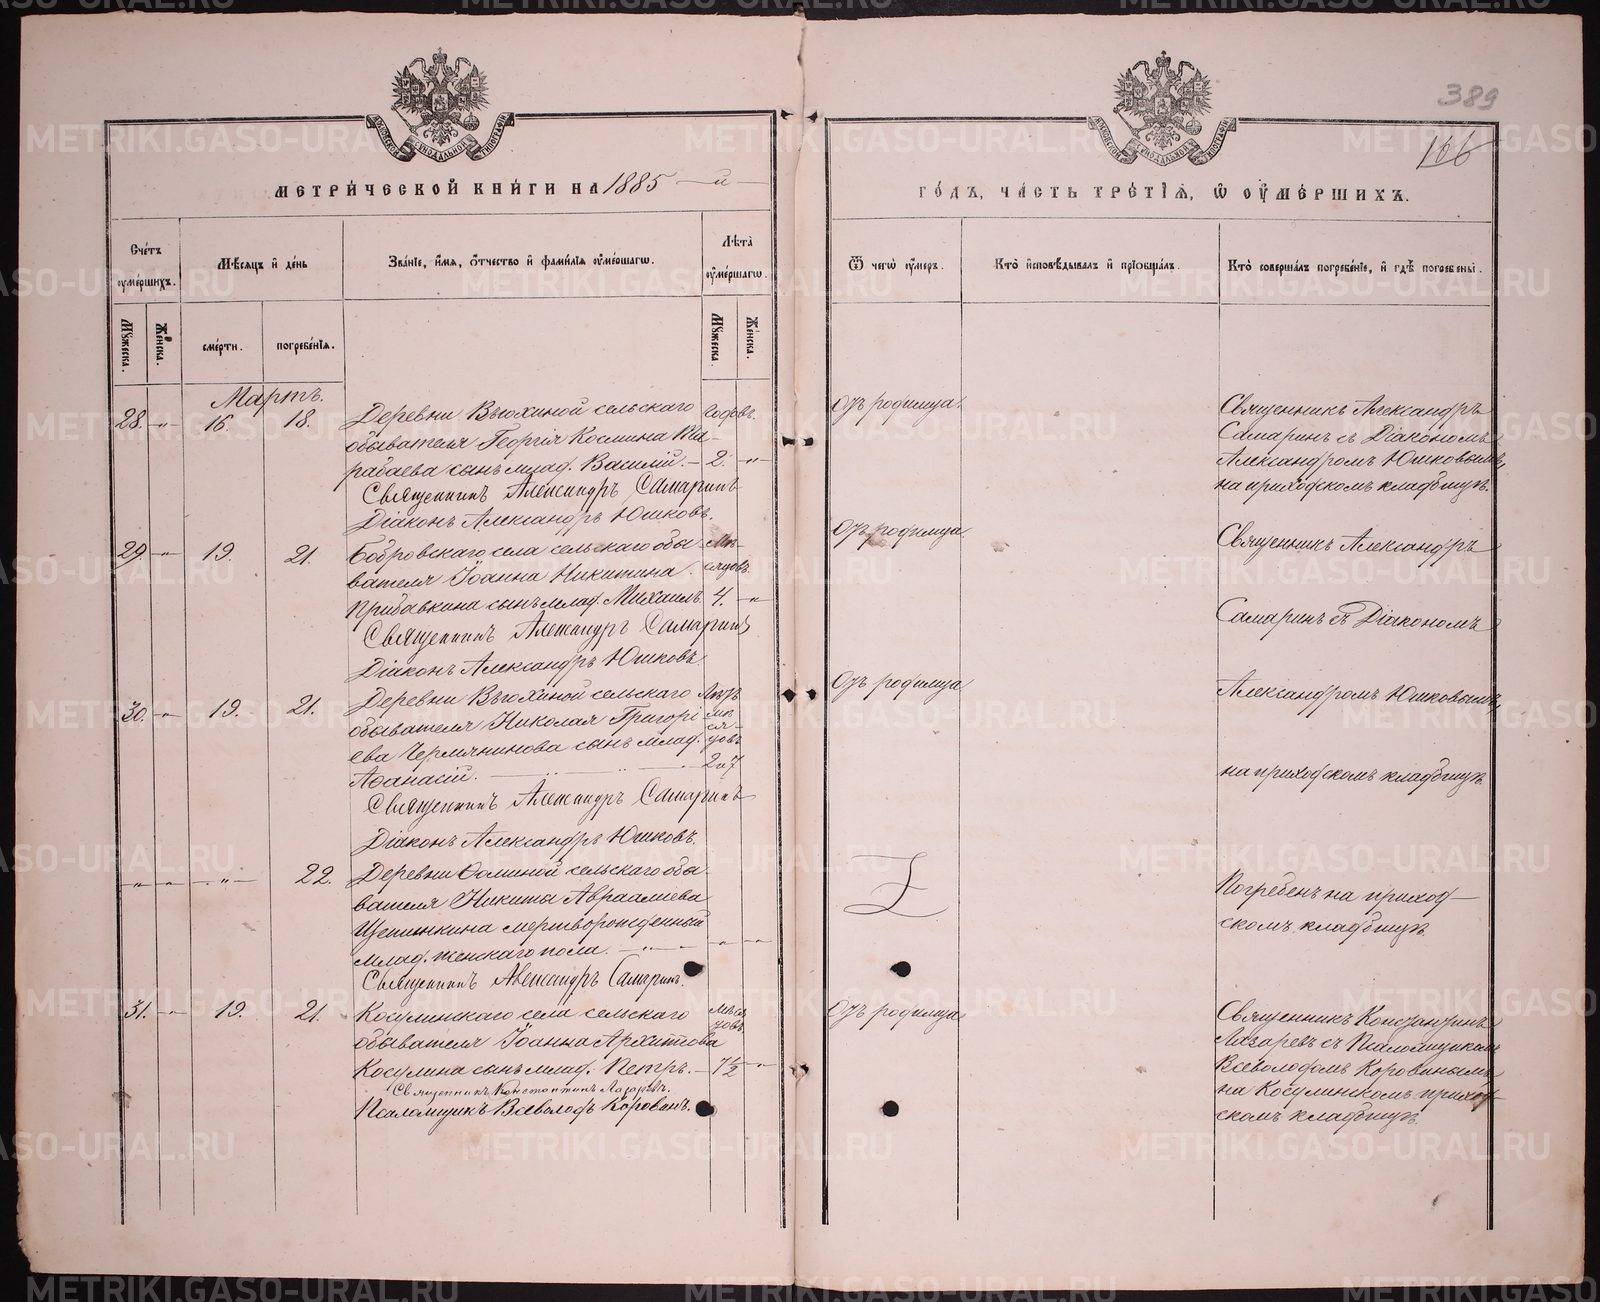 389
166
МЕТРИ́ЧЕСКОЙ КНИ́ГИ НА 1885 — й —
ГО́ДЪ, ЧА́СТЬ ТРЕ́ТІѦ, Ѽ ОУ҆МЕ́РШИХЪ.
Сче́тъ оумершихъ.
Мѣ́сяцъ и҆ де́нь
Зва́ніе, и҆́мя, ѻ҆́тчество и҆ фами́лія оу҆ме́ршагѡ.
Лѣ́та оу҆ме́ршагѡ.
Ѿ чегѡ̀ оу҆́меръ.
Кто̀ и҆сповѣ́дывалъ и҆ прїѻбща́лъ.
Кто̀ соверша́лъ погребе́ніе, и҆ гдѣ̀ погребены̀.
Мꙋжеска.
Же́нска.
сме́рти.
погребе́нія.
Мꙋжеска.
Же́нска.
Мартъ.
28. -"- 16. 18. Деревни Вьюхиной сельскаго
обывателя Георгія Космина Та-
рабаева сынъ млад. Василій. — 2. -"-
Священникъ Александръ Самаринъ
Діаконъ Александръ Юшковъ.
Отъ родимца.
Священникъ Александръ
Самаринъ съ Діакономъ
Александромъ Юшковымъ,
на приходскомъ кладбищѣ.
29 -"- 19. 21. Бобровскаго села сельскаго обы- Мѣ-
вателя Іоанна Никитина сяцовъ.
Прибавкина сынъ млад. Михаилъ. 4. -"-
Священникъ Александръ Самаринъ
Діаконъ Александръ Юшковъ
Отъ родимца
Священникъ Александръ
Самаринъ съ Діакономъ
30. -"- 19. 21. Деревни Вьюхиной сельскаго
обывателя Николая Григорі- мѣ
ева Чермянинова сынъ млад. ся-
Аѳанасій. цовъ
2 и 7
Священникъ Александръ Самаринъ
Діаконъ Александръ Юшковъ.
Отъ родимца
Александромъ Юшковымъ,
на приходскомъ кладбищѣ
-"- -"- -"- 22. Деревни Ѳоминой сельскаго обы-
вателя Никиты Авраамиева
мертворожденный
млад. женскаго пола. -"-
Священникъ Александръ Самаринъ.
Погребенъ на приход-
скомъ кладбищѣ.
31. -"- 19. 21. Косулинскаго села сельскаго мѣся
обывателя Іоанна Архипова цовъ
Косулина сынъ млад. Петръ. — 7½ -"-
Священникъ Константинъ Лазаревъ.
Псаломщикъ Всеволодъ Коровинъ.
Отъ родимца
Священникъ Константинъ
Лазаревъ съ Псаломщикомъ
Всеволодомъ Коровинымъ
на Косулинскомъ приход-
скомъ кладбищѣ.
METRIKI.GASO-URAL.RU